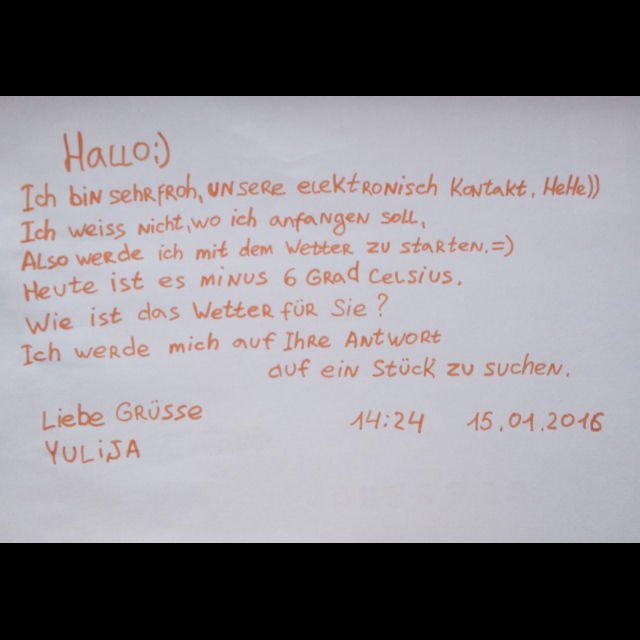 Hallo:)
Ich bin sehr froh, unsere elektronisch Kontakt. HeHe))
Ich weiss nicht, wo ich anfangen soll,
Also werde ich mit dem Wetter zu starten.=)
Heute ist es minus 6 Grad Celsius.
Wie ist das Wetter für Sie?
Ich werde mich auf Ihre Antwort
auf ein Stück zu suchen.
Liebe Grüsse 14:24 15.01.2016
YULiJA